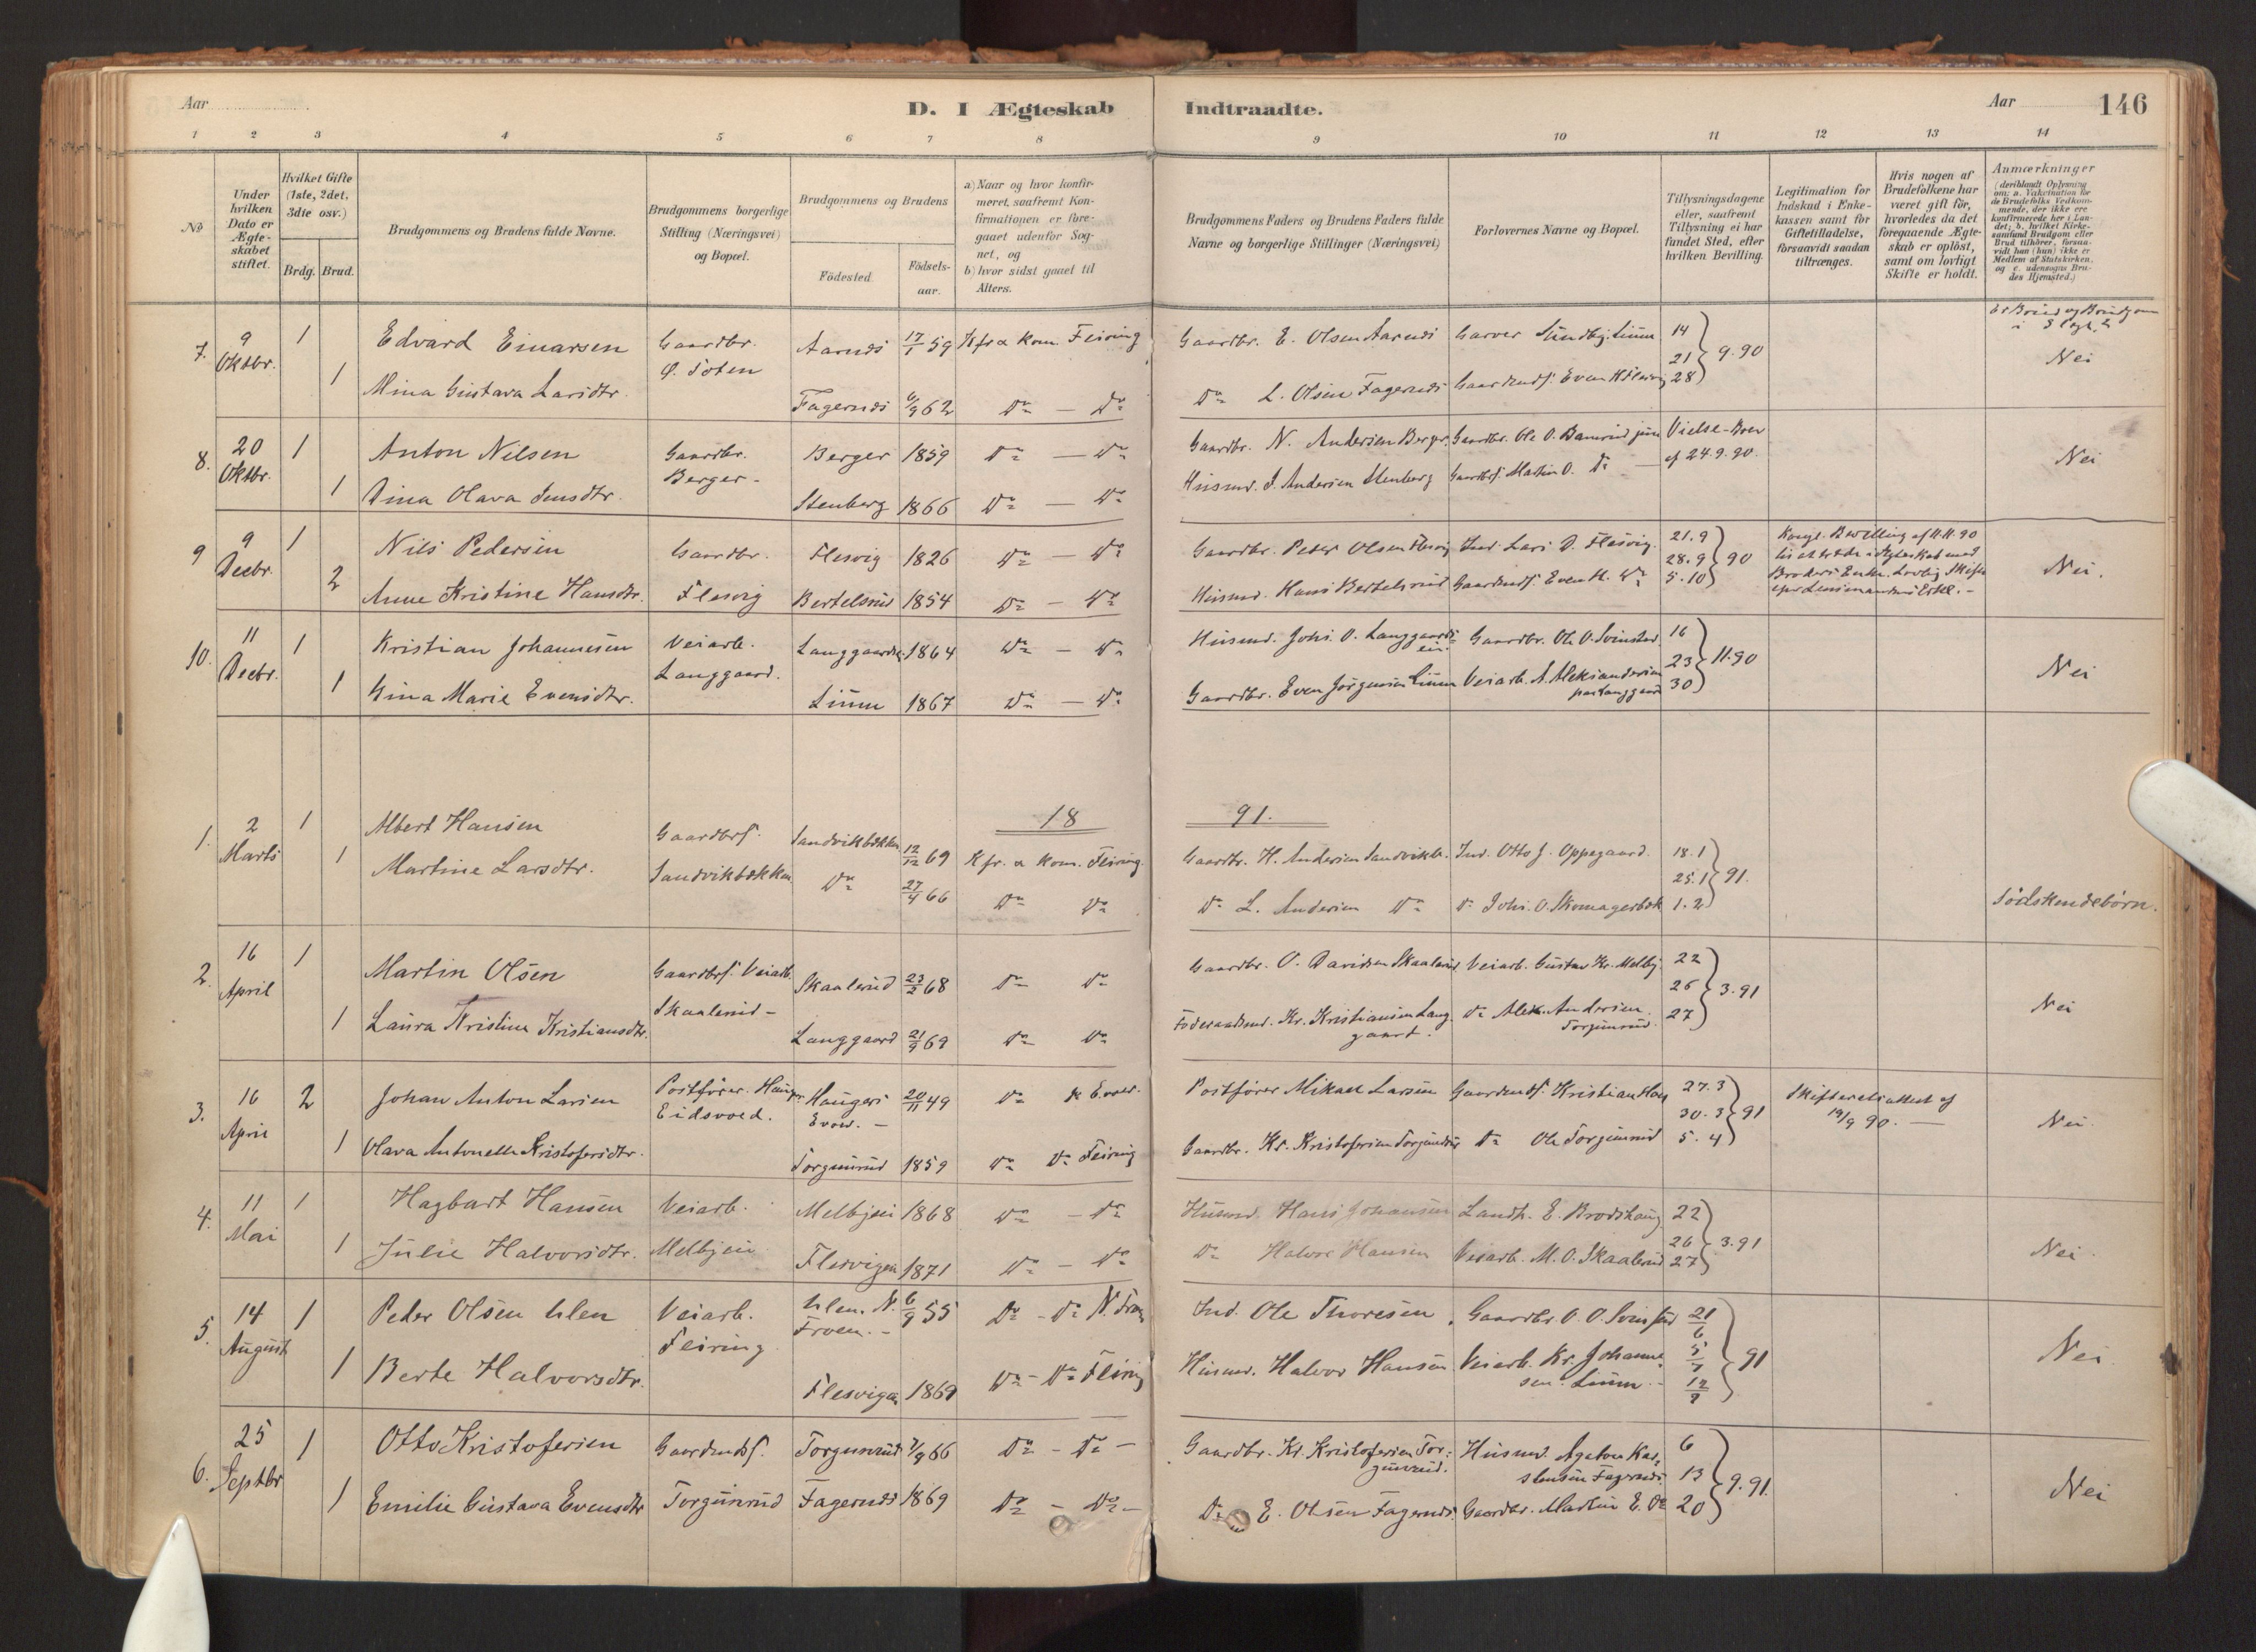 Aar
D. I Ægteskab Indtraadte.
Aar
146
1 2 3 4 5 6 7 8 9 10 11 12 13 14
No
Under hvilken Dato er Ægteskabet stiftet.
Hvilket Gifte (1ste, 2det, 3die osv.)
Brdg. Brud.
Brudgommens og Brudens fulde Navne.
Brudgommens borgerlige Stilling (Næringsvei) og Bopæl.
Brudgommens og Brudens
Födested.
Födselsaar.
a) Naar og hvor konfirmeret, saafremt Konfirmationen er foregaaet udenfor Sognet, og
b) hvor sidst gaaet til Alters.
Brudgommens Faders og Brudens Faders fulde Navne og borgerlige Stillinger (Næringsvei)
Forlovernes Navne og Bopæl.
Tillysningsdagene eller, saafremt Tillysning ei har fundet Sted, efter hvilken Bevilling.
Legitimation for Indskud i Enkekassen samt for Giftetilladelse, forsaavidt saadan tiltrænges.
Hvis nogen af Brudefolkene har været gift för, hvorledes da det foregaaende Ægteskab er oplöst, samt om lovligt Skifte er holdt.
Anmærkninger
(deriblandt Oplysning om: a. Vakcination for de Brudefolks Vedkommende, der ikke ere konfirmerede her i Landet; b. hvilket Kirkesamfund Brudgom eller Brud tilhörer, forsaavidt han (hun) ikke er Medlem af Statskirken, og c. udensogns Brudes Hjemsted.)
7. 9 Oktbr. 1 Edvard Einarsen Gaardbr. Ö. Toten Aarnes 17/1 59 Kfr & kom. Feiring Gaardbr. E. Olsen Aarnes Garver Sundby. Linn 14
1 Mina Gustava Larsdtr. Fagernes 62 Do — Do Do L. Olsen Fagernes Gaardmdss. Even 21 28 } 9.90 Nei
8. 20 Oktbr. 1 Anton Nilsen Gaardbr. Berger Berger 1859 Do — Do Gaardbr. N. Andersen Berger. Gaardbr. Ole O. Vielse-Brev
1 Dina Olava Jensdtr. Stenberg 1866 Do — Do Husmd. J. Andersen Stenberg Gaardbrs. Martin O. Do — af 24.9.90. Nei
9 9 Decbr. 1 Nils Pedersen Gaardbr. Flesvig Flesvig 1826 Do — Do Gaardbr. Peder Olsen Flesvig Ind. Lars P. Flesvig. 21.9 Kongl. Bevilling af 11.11.90
2 Anne Kristine Hansdtr. Bertelsrud 1854 Do — Do Husmd. Hans Bertelsrud Gaardmdss. Even H. Do 28.9 5.10 } 90 til at træde i Ægteskab med Broders Enke. Lovlig Skifte Nei.
10. 11 Decbr. 1 Kristian Johannesen Veiarb. Langgaard. Langgaardei 1864 Do — Do Husmd. Johs. O. Langgaardseie. Gaardbr. Ole O. Svinstad 16
1 Gina Marie Evensdtr. Linn 1867 Do — Do Gaardbr. Even Jørgensen Linn Veiarb. A. Aleksandersen paa Langgaard 23 30 } 11.90 Nei
1891.
1. 2 Marts 1 Albert Hansen Gaardbrs. Sandvikbækken Sandvikbækken 12/12 69 Kfr. & kom. Feiring. Gaardbr. H. Andersen Sandvikb. Ind. Otto J. Oppegaard. 18.1
1 Martine Larsdtr. Do 27/4 66 Do Do Do L. Andersen Do Do Johs. O. Skomagerbæk 25.1 1.2 } 91. Södskendebörn.
2. 16 April 1 Martin Olsen Gaardbrs. Veiarb. Skaalerud – Skaalerud 23/2 68 Do Do Gaardbr. O. Davidsen Skaalerud Veiarb. Gustav Kr. Melby 22
1 Laura Kristine Kristiansdtr. Langgaard 21/9 69 Do Do Föderaadsmd. Kr. Kristiansen Langgaard. Do Alex. Andersen Torgunrud. 26 27 } 3.91 Nei
3. 16 April 2 Johan Anton Larsen Postfører. Eidsvold. Haugers Evold. – 20/11 49 Do K Evold. Postfører Mikael Larsen Gaardmdss. Kristian 27.3 Skifteretsattest af 19/9 90. —
1 Olava Antonette Kristofersdtr. Torgunrud 1859 Do Do Feiring Gaardbr. Kr. Kristofersen Torgunrud Do Ole Torgunrud 30.3 5.4 } 91 Nei.
4. 11 Mai 1 Hagbart Hansen Veiarb. Melbyeie Melbyeie 1868 Do – Do Husmd. Hans Johansen Landh. E. Brodshaug 22
1 Julie Halvorsdtr. Flesvigen 1871 Do – Do Do Halvor Hansen Veiarb. M. O. Skaalerud 26 27 } 3.91 Nei.
5. 14 August 1 Peder Olsen Ulen Veiarb. Feiring Ulen. N. Froen. – 6/9 55 Do – Do N. Fron Ind. Ole Thoresen Gaardbr. O. O. Svinstad 21/6
1 Berte Halvorsdtr. Flesvigen 1869 Do – Do Feiring Husmd. Halvor Hansen Veiarb. Kr. Johannesen Linn – 5/7 12/7 } 91 Nei.
6. 25 Septbr 1 Otto Kristofersen Gaardmdss. Torgunrud Torgunrud 7/9 66 Do – Do – Gaardbr. Kr. Kristofersen Torgunrud. Husmd. Agaton Karstensen Fagernes. 6
1 Emilie Gustava Evensdtr Fagernes 1869 Do – Do – Do E. Olsen Fagernes. Gaardbr. Martin E. Do 13 20 } 9.91. Nei